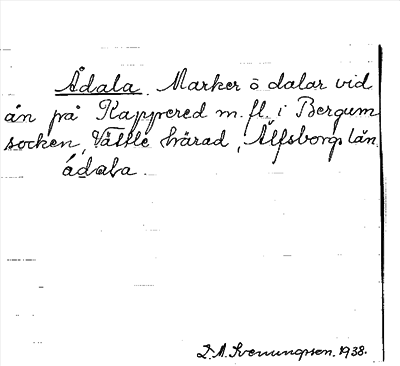 Ådala. Marker o dalar vid
ån på Kappered m.fl. i Bergum
socken, Vättle härad, Älfsborgs län.
ádala.
D. A. Svenungsson. 1938.